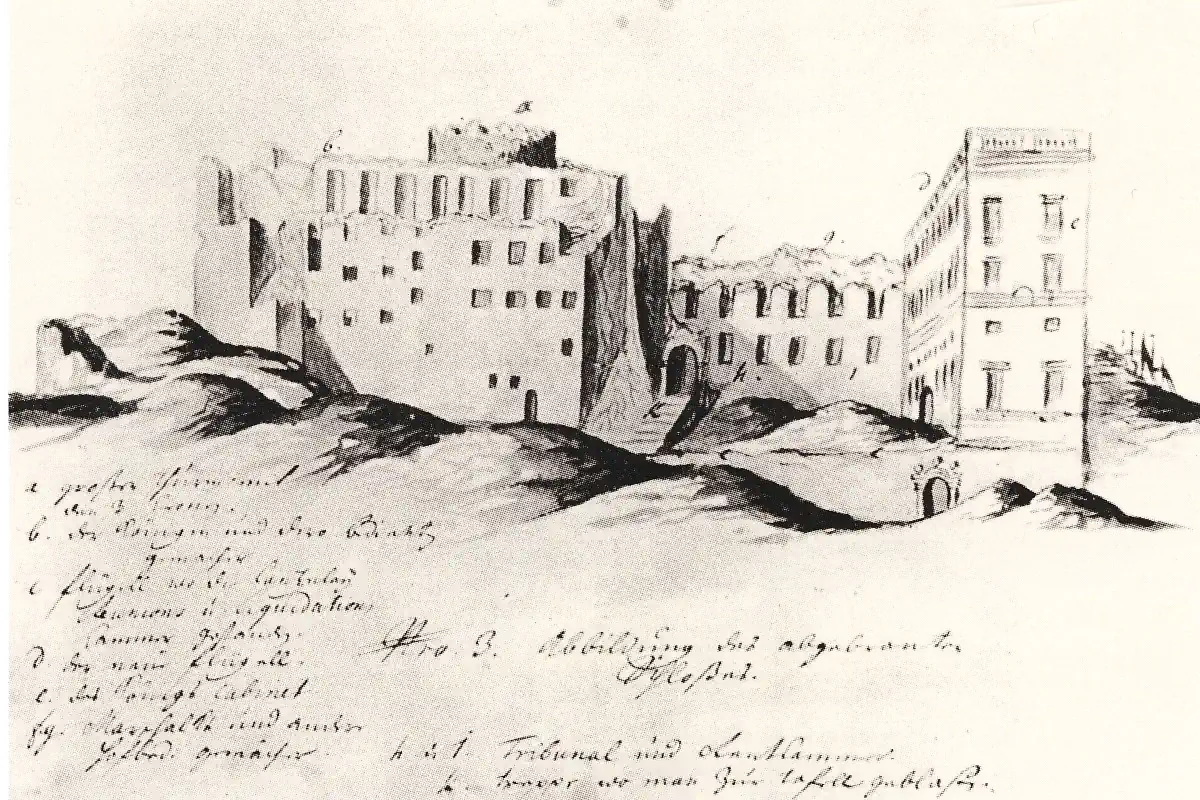 a
b.
c
f
g.
h.
i
k
a großer Thurm mit
den 3 Cronen.
b. der Königin und dero
gemächer
c flügell wo die Cantzelay
Reunions ü liquidations
Cammer
d der neüe flügell.
e. des Königs Cabinet
fg. Marschalls und andere
gemächer
Nro. 3. Abbildung des abgebranten
Schloßes.
h ü i. Tribunal und Cammer.
k. wo man Zür tafell geblaßen.